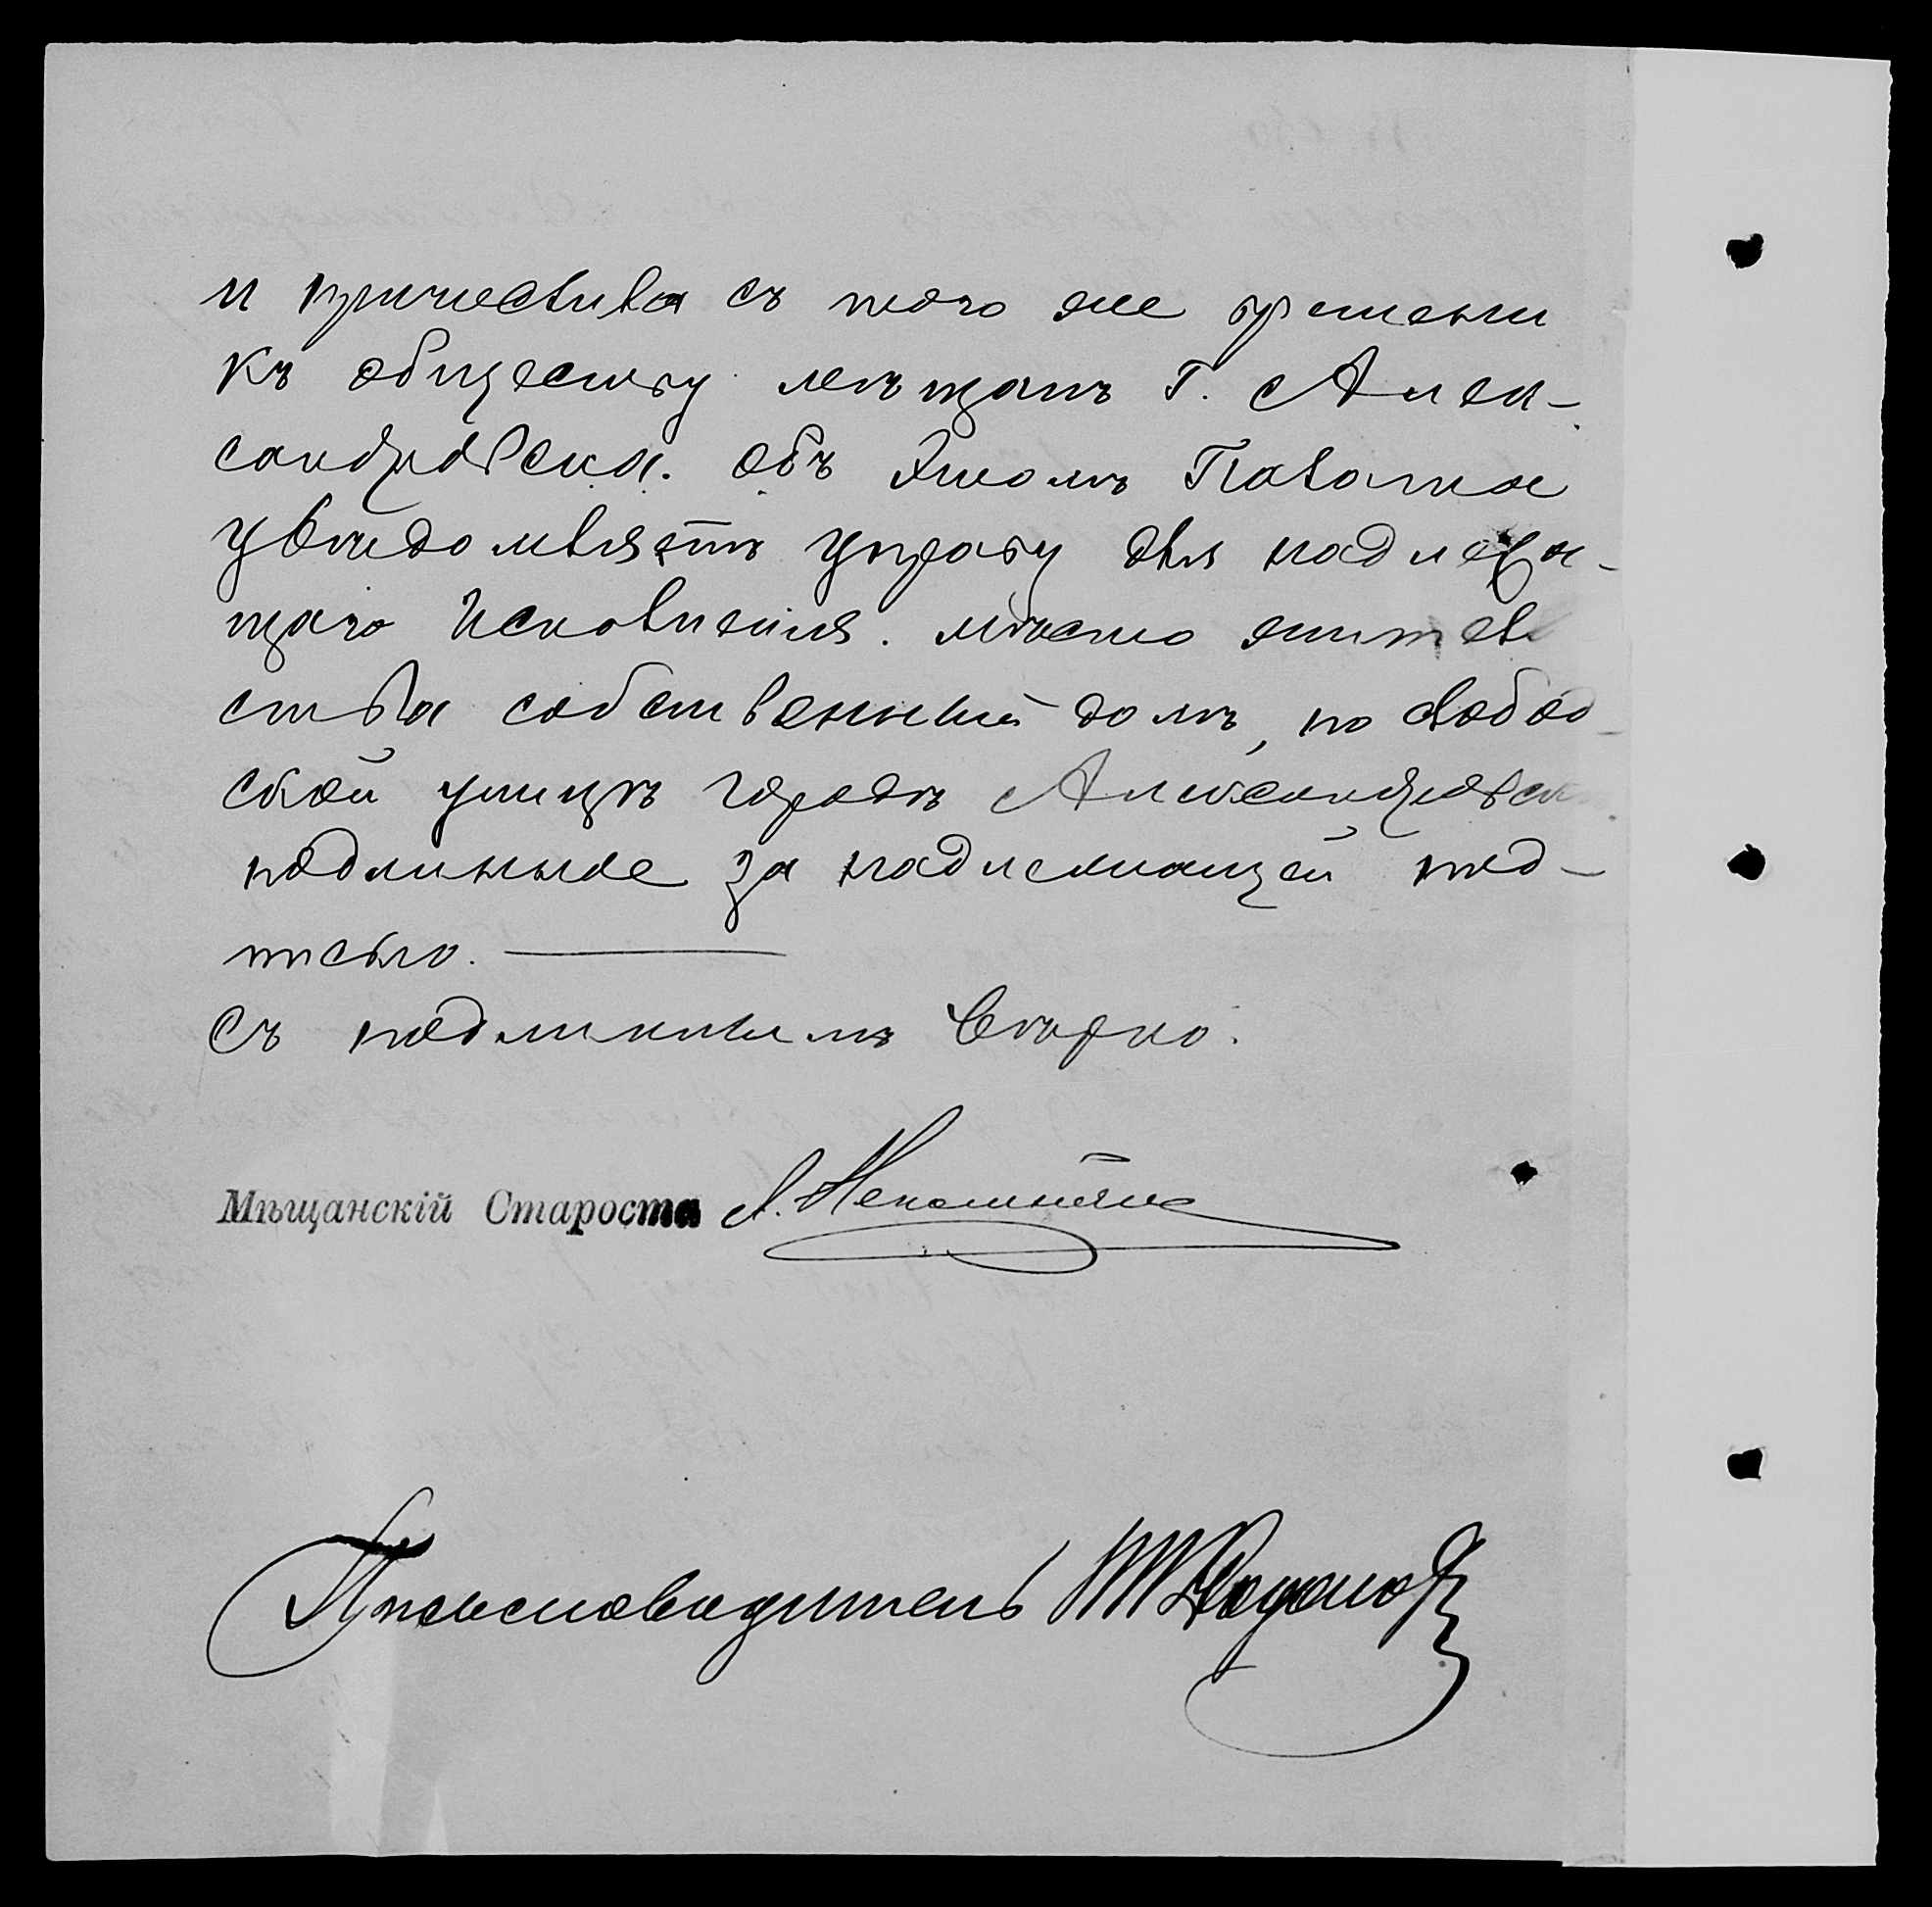 и причислила съ того же времени
къ обществу мѣщанъ г. Алек-
сандровска. Объ этомъ Палата
увѣдомляетъ управу для надлежа-
щаго исполненія. Мѣсто житель
ства собственный домъ, по слобод-
ской улицѣ городѣ Александровск
подлинное за надлежащей под-
писью.
Съ подлиннымъ вѣрно.
Мѣщанскій Староста
Письмоводитель